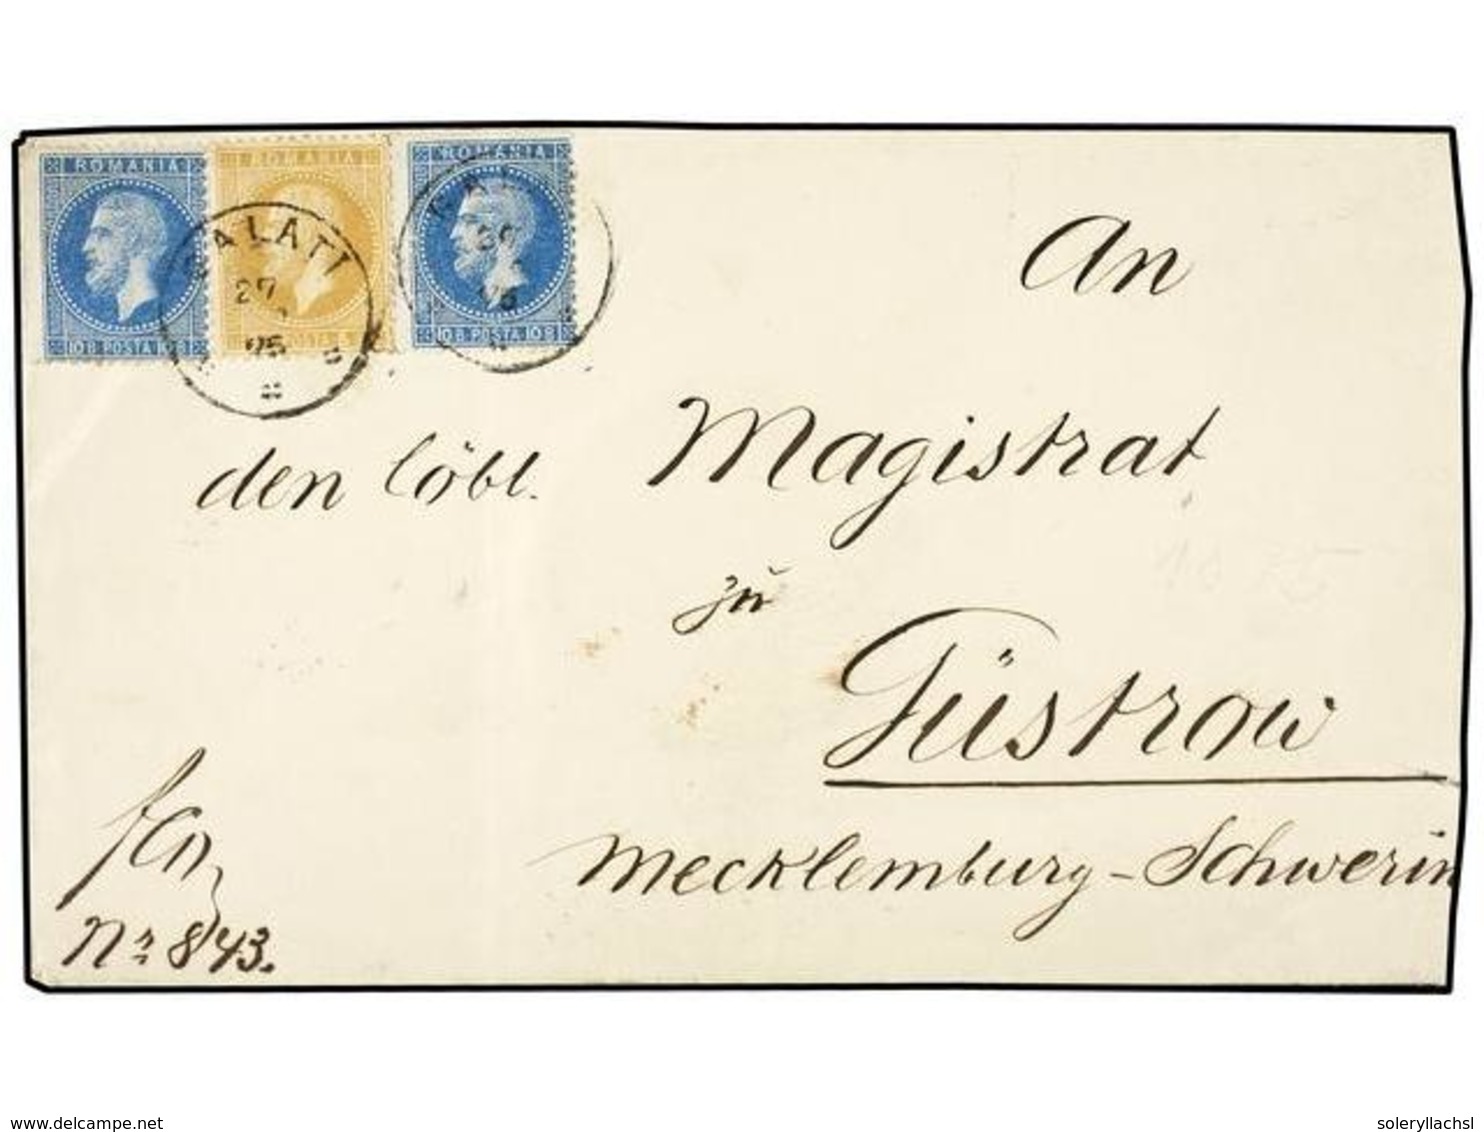 ROMANIA ROMANIA ROMANIA
GALATI
27
75
10 B. POSTA 10 B. POSTA 5 10 B. POSTA 10 B
An
den löbl. Magistrat
zu
Güstrow
Mecklemburg-Schwerin
No 843.
delcampe.net
soleryllachsl